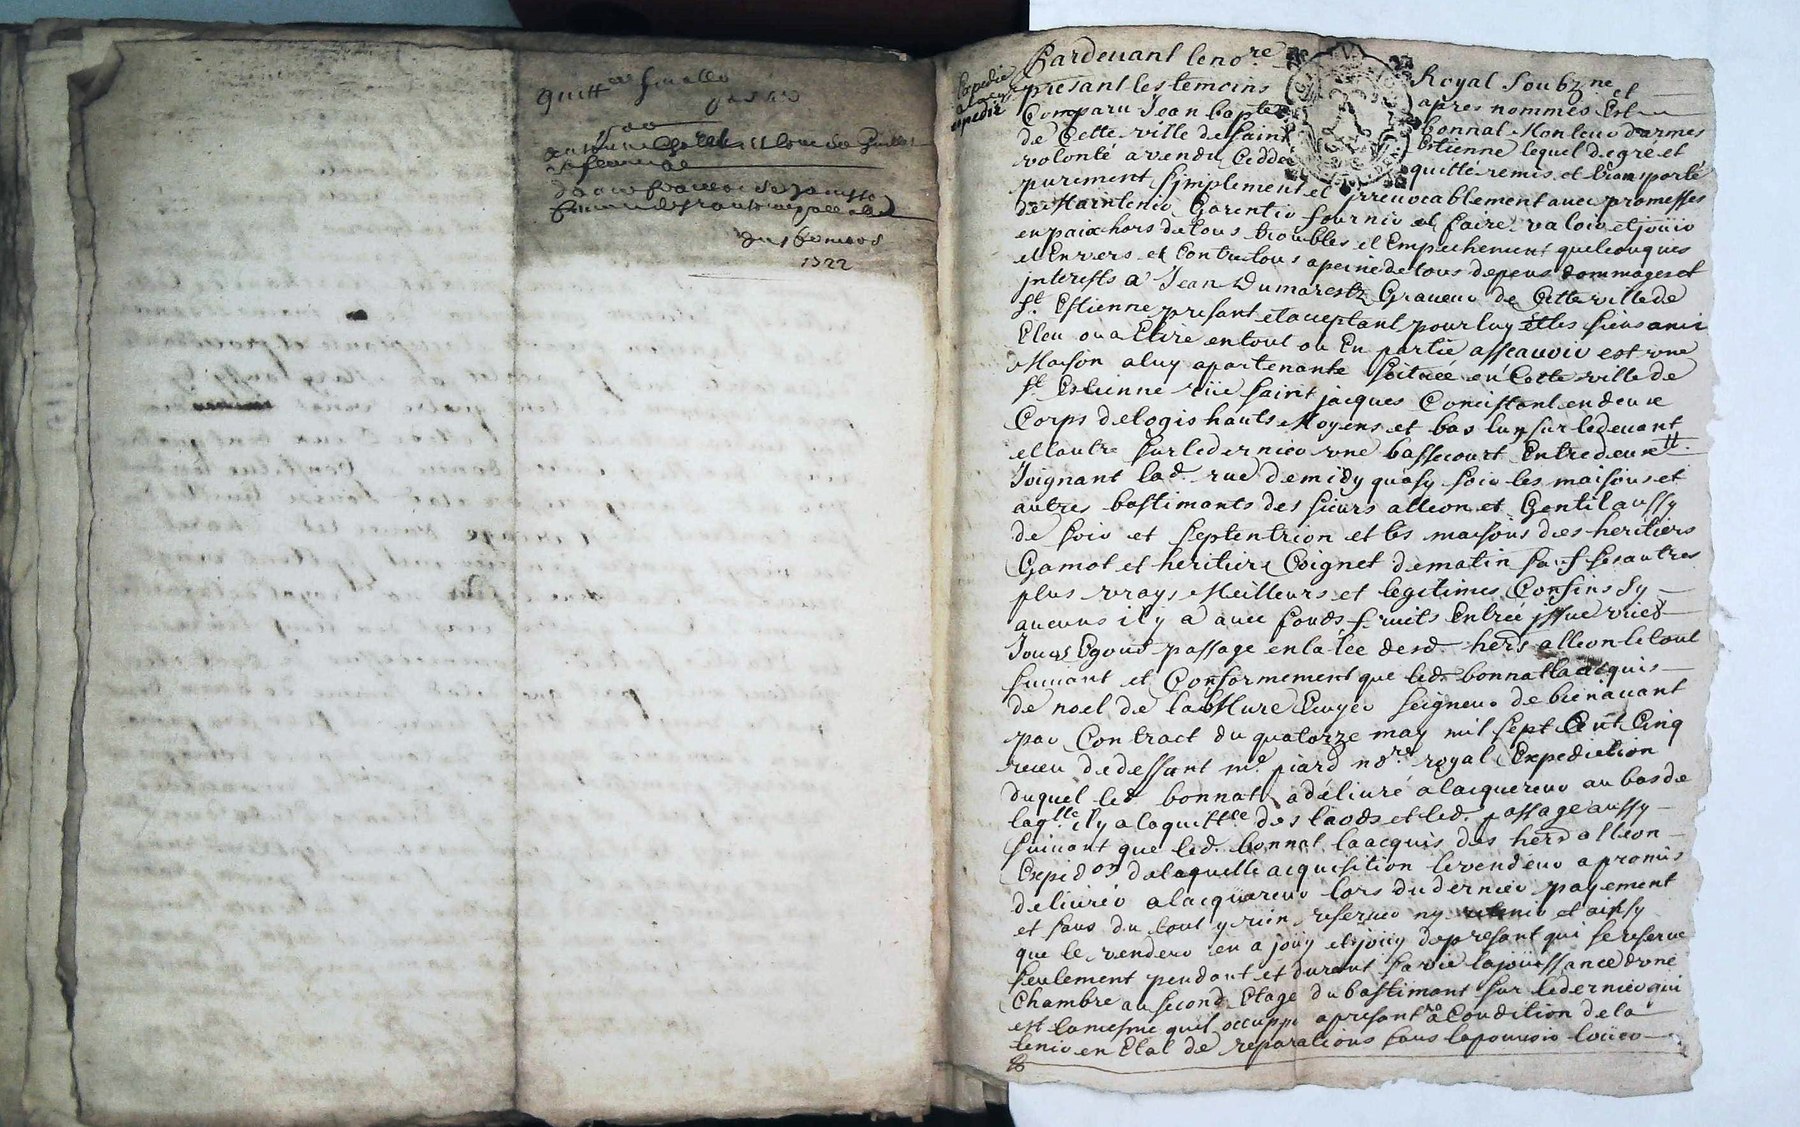 quitt.ce finalle
du 1
1722
Expedié
expedié
Pardevant le no.re Royal soubz.ne et
presant les temoins apres nommés Est
Comparu Jean bapte bonnat Monteur d'armes
de Cette ville de Saint Etienne lequel de gré et
volonté a vendu Cedde quitté remis et transporté
purement simplement et irrevocablement avec promesses
de Maintenir Garentir fournir et faire valoir et jouir
en paix hors de tous troubles et Empechement quelconques
et Envers et Contre tous a peine de tous depens dommages et
interests a Jean Dumarest Graveur de Cette ville de
St. Estienne presant et acceptant pour luy et les siens amis
Eleu ou a Elire en tout ou En partie assçavoir est une
Maison a luy apartenante scituée en Cette ville de
St Estienne rüe saint jacques Concistant en deux
Corps de logis hauts Moyens et bas l'un sur le devant
et l'autre sur le dernier une bassecourt Entre deux
Joignant lad. rue de midy quasy soir les maisons et
autres bastimants des sieurs alleon et Gentil aussy
de soir et septentrion et les maisons des heritiers
Gamot et heritiers Coignet de matin sauf ses autres
plus vrays Meilleurs et legitimes Confins sy
aucuns il y a avec fonds fruits Entrée issue vües
Jours Egous passage en la lée desd. hers alleon le tout
suivant et Conformement que led. bonnat l'a acquis
de noel de la Mure Ecuyer seigneur de bienavant
par Contract du quatorze may mil sept Cent Cinq
receu de deffunt me. piard no.re royal Expedietion
duquel led. bonnat a délivré a lacquereur au bas de
laq.lle il y a la quitt.ce des laods et led. passage aussy
suivant que led. bonnat la acquis des hers alleon
Expid.on de laquelle acquisition le vendeur a promis
delivrer a lacquereur lors du dernier payement
et sans du tout y rien reserver ny retenir et ainsy
que le vendeur en a jouy et jouy de presant qui se reserve
seulement pendant et durant sa vie la jouissance d'une
Chambre au second Etage du bastimant sur le dernier qui
est la mesme quil occuppe a presant a Condition de la
tenir en Etat de reparations sans la pouvoir loüer